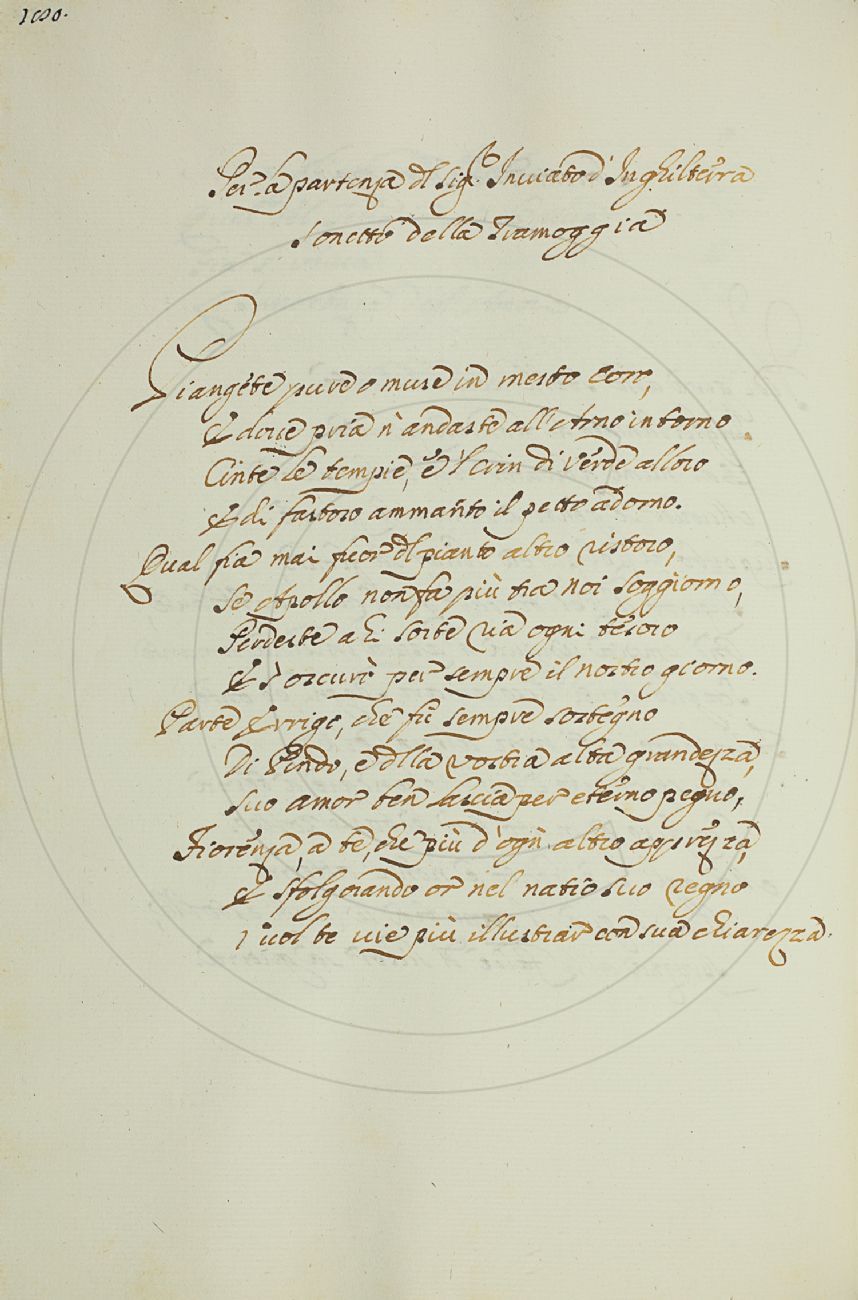 1080.
Per la partenza dl Sig.r Inviato d'Inghilterra
Sonetto della Tramoggia
Piangete pure o muse in mesto Coro,
E dove pria n'andaste all'Arno intorno
Cinte le tempie, e 'l crin di verde alloro
E di fastoso ammanto il petto adorno.
Qual fia mai fuor dl pianto altro ristoro,
Se Apollo non fa più tra noi soggiorno,
Perdeste ahi sorte ria ogni tesoro
E s'oscurò per sempre il nostro giorno.
Parte Errigo, che fù sempre sostegno
Di Pindo, e dlla vostra alta grandezza,
Suo amor ben lascia per eterno pegno,
Fiorenza, a te, che più d'ogn altro apprezza,
E sfolgorando or nel natio suo regno
Vuol te vie più illustrar con sua chiarezza.